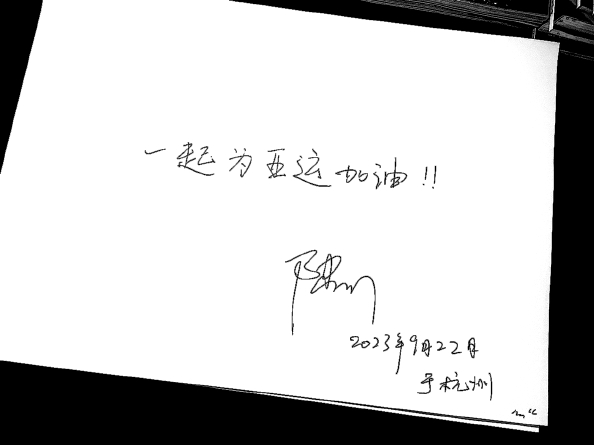 一起为亚运加油!!
2023年9月22日
于杭州